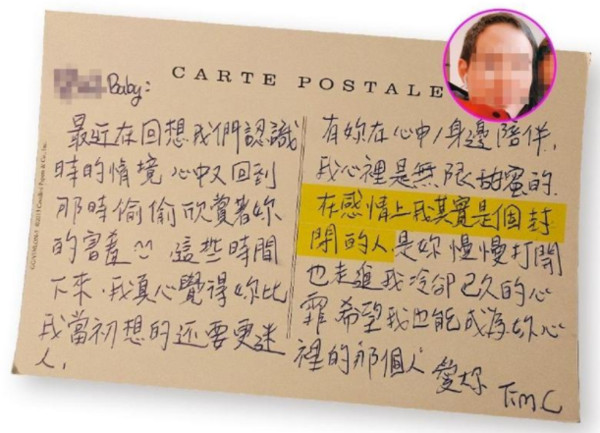 CARTE POSTALE
Baby:
最近在回想我們認識
時的情境 心中又回到
那時偷偷欣賞著妳
的害羞 這些時間
下來,我真心覺得妳比
我當初想的還要更迷
人,
有妳在心中/身邊陪伴,
我心裡是無限甜蜜的.
在感情上我其實是個封
閉的人 是妳慢慢打開
也走進我冷卻已久的心
霏 希望我也能成為妳心
裡的那個人
愛妳 Tim.C